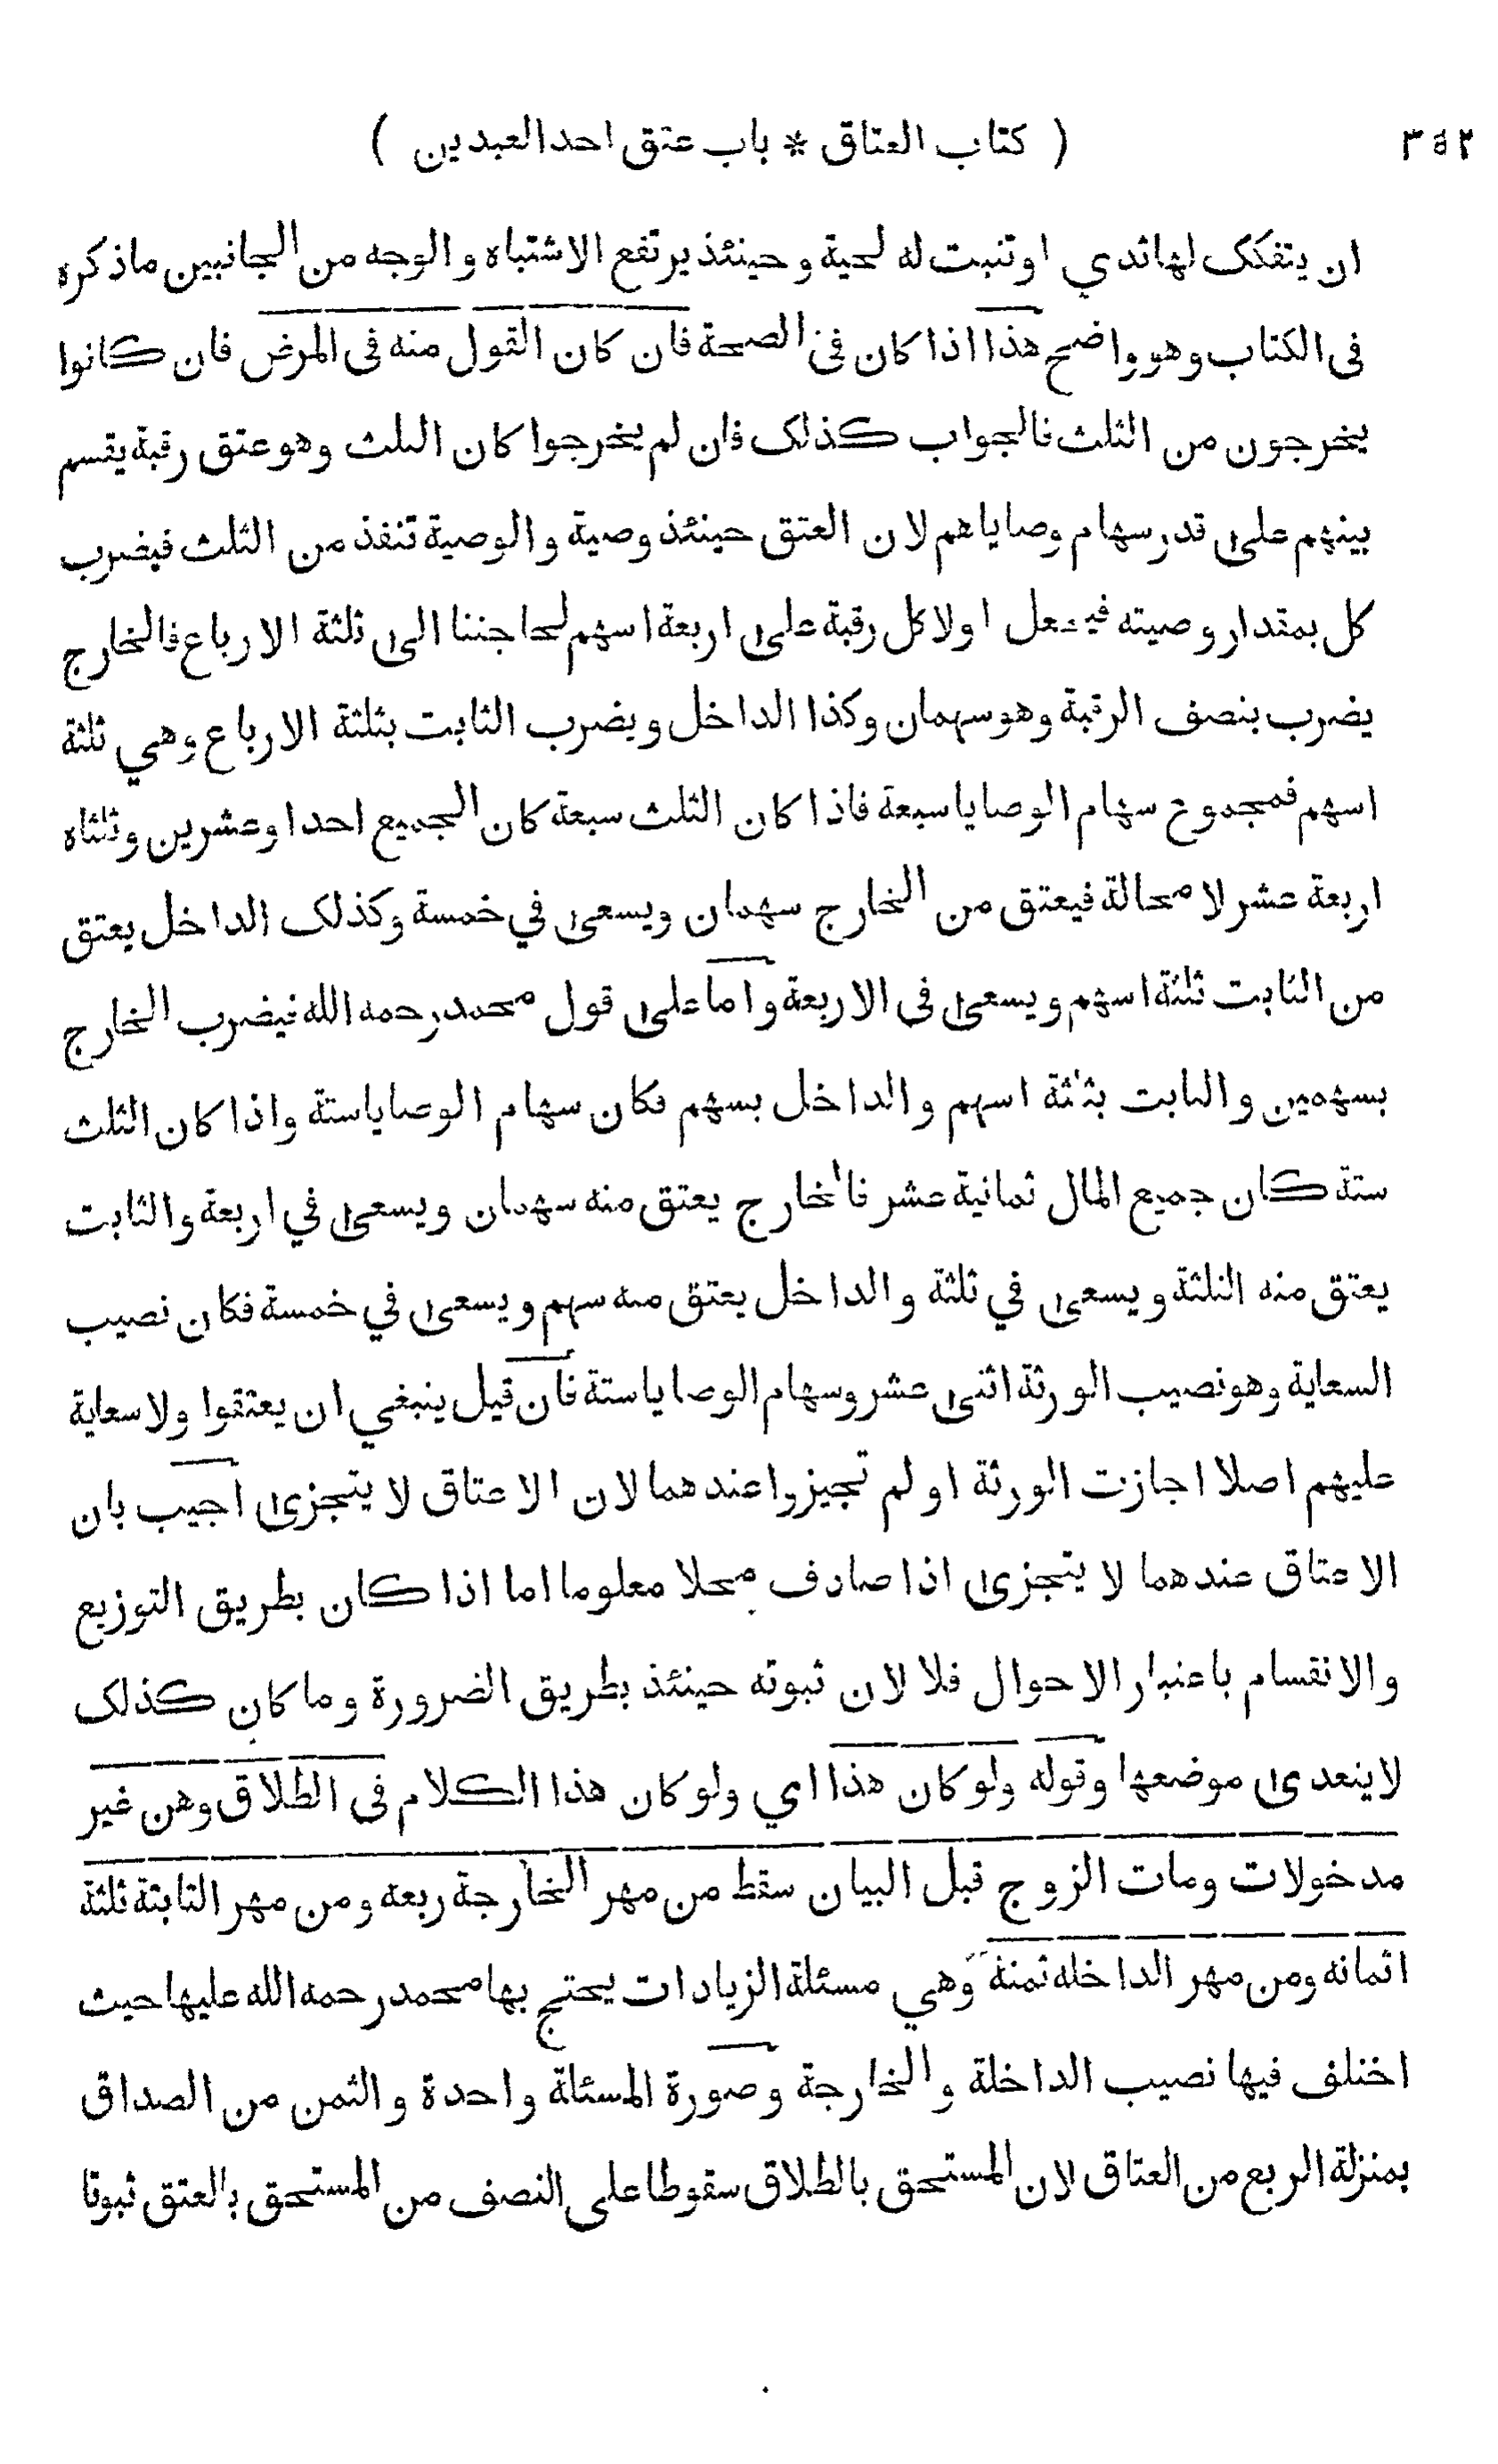 ٣٥٢ ( كتاب العتاق * باب عتق احد العبدين )
ان يتفكك لها ثدي اوتنبت له لحية وحينئذ يرتفع الاشتباه والوجه من الجانبين ماذكره
فى الكتاب وهو واضح هذا اذا كان فى الصحة فان كان القول منه فى المرض فان كانوا
يخرجون من الثلث فالجواب كذلك فان لم يخرجوا كان الثلث وهو عتق رقبة يقسم
بينهم على قدر سهام وصاياهم لان العتق حينئذ وصية والوصية تنفذ من الثلث فيضرب
كل بمقدار وصيته فيجعل اولا كل رقبة على اربعة اسهم لحاجتنا الى ثلثة الارباع فالخارج
يضرب بنصف الرقبة وهو سهمان وكذا الداخل ويضرب الثابت بثلثة الارباع وهي ثلثة
اسهم فمجموع سهام الوصايا سبعة فاذا كان الثلث سبعة كان الجميع احدا وعشرين وثلثاه
اربعة عشر لا محالة فيعتق من الخارج سهمان ويسعى في خمسة وكذلك الداخل يعتق
من الثابت ثلثة اسهم ويسعى فى الاربعة واما على قول محمد رحمه الله فيضرب الخارج
بسهمين والثابت بثلثة اسهم والداخل بسهم فكان سهام الوصايا ستة واذا كان الثلث
ستة كان جميع المال ثمانية عشر فالخارج يعتق منه سهمان ويسعى في اربعة والثابت
يعتق منه الثلثة ويسعى في ثلثة والداخل يعتق منه سهم ويسعى في خمسة فكان نصيب
السعاية وهو نصيب الورثة اثنى عشر وسهام الوصايا ستة فان قيل ينبغي ان يعتقوا ولا سعاية
عليهم اصلا اجازت الورثة او لم تجيزوا عندهما لان الاعتاق لا يتجزى اجيب بان
الاعتاق عندهما لا يتجزى اذا صادف محلا معلوما اما اذا كان بطريق التوزيع
والانقسام باعتبار الاحوال فلا لان ثبوته حينئذ بطريق الضرورة وما كان كذلك
لا يتعدى موضعها وقوله ولو كان هذا اي ولو كان هذا الكلام فى الطلاق وهن غير
مدخولات ومات الزوج قبل البيان سقط من مهر الخارجة ربعه ومن مهر الثابتة ثلثة
اثمانه ومن مهر الداخله ثمنه وهي مسئلة الزيادات يحتج بها محمد رحمه الله عليها حيث
اختلف فيها نصيب الداخلة والخارجة وصورة المسئلة واحدة والثمن من الصداق
بمنزلة الربع من العتاق لان المستحق بالطلاق سقوطا على النصف من المستحق بالعتق ثبوتا